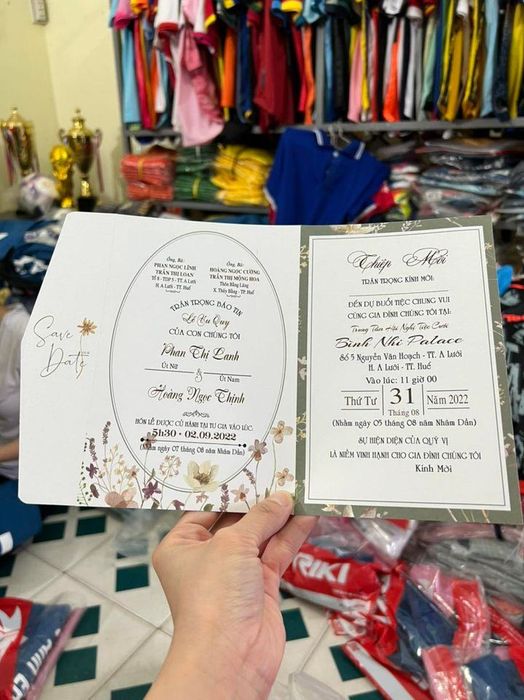 Save
the
Date
Ông, Bà:
PHAN NGỌC LĨNH
TRẦN THỊ LOAN
Tổ 8 - TDP 5 - TT. A Lưới
H. A Lưới - TT. Huế
Ông, Bà:
HOÀNG NGỌC CƯỜNG
TRẦN THỊ MỘNG HOA
Thôn Bằng Lãng
X. Thủy Bằng - TP. Huế
TRÂN TRỌNG BÁO TIN
Lễ Vu Quy
CỦA CON CHÚNG TÔI
Phan Thị Lanh
Út Nữ
&
Út Nam
Hoàng Ngọc Thịnh
HÔN LỄ ĐƯỢC CỬ HÀNH TẠI TƯ GIA VÀO LÚC:
5h30 • 02.09.2022
(Nhằm ngày 07 tháng 08 năm Nhâm Dần)
Thiệp Mời
TRÂN TRỌNG KÍNH MỜI:
ĐẾN DỰ BUỔI TIỆC CHUNG VUI
CÙNG GIA ĐÌNH CHÚNG TÔI TẠI:
Trung Tâm Hội Nghị Tiệc Cưới
Bình Nhi Palace
Số 5 Nguyễn Văn Hoạch - TT. A Lưới
H. A Lưới - TT. Huế
Vào lúc: 11 giờ 00
Thứ Tư
31
Tháng 08
Năm 2022
(Nhằm ngày 05 tháng 08 năm Nhâm Dần)
SỰ HIỆN DIỆN CỦA QUÝ VỊ
LÀ NIỀM VINH HẠNH CHO GIA ĐÌNH CHÚNG TÔI
Kính Mời
RIKI